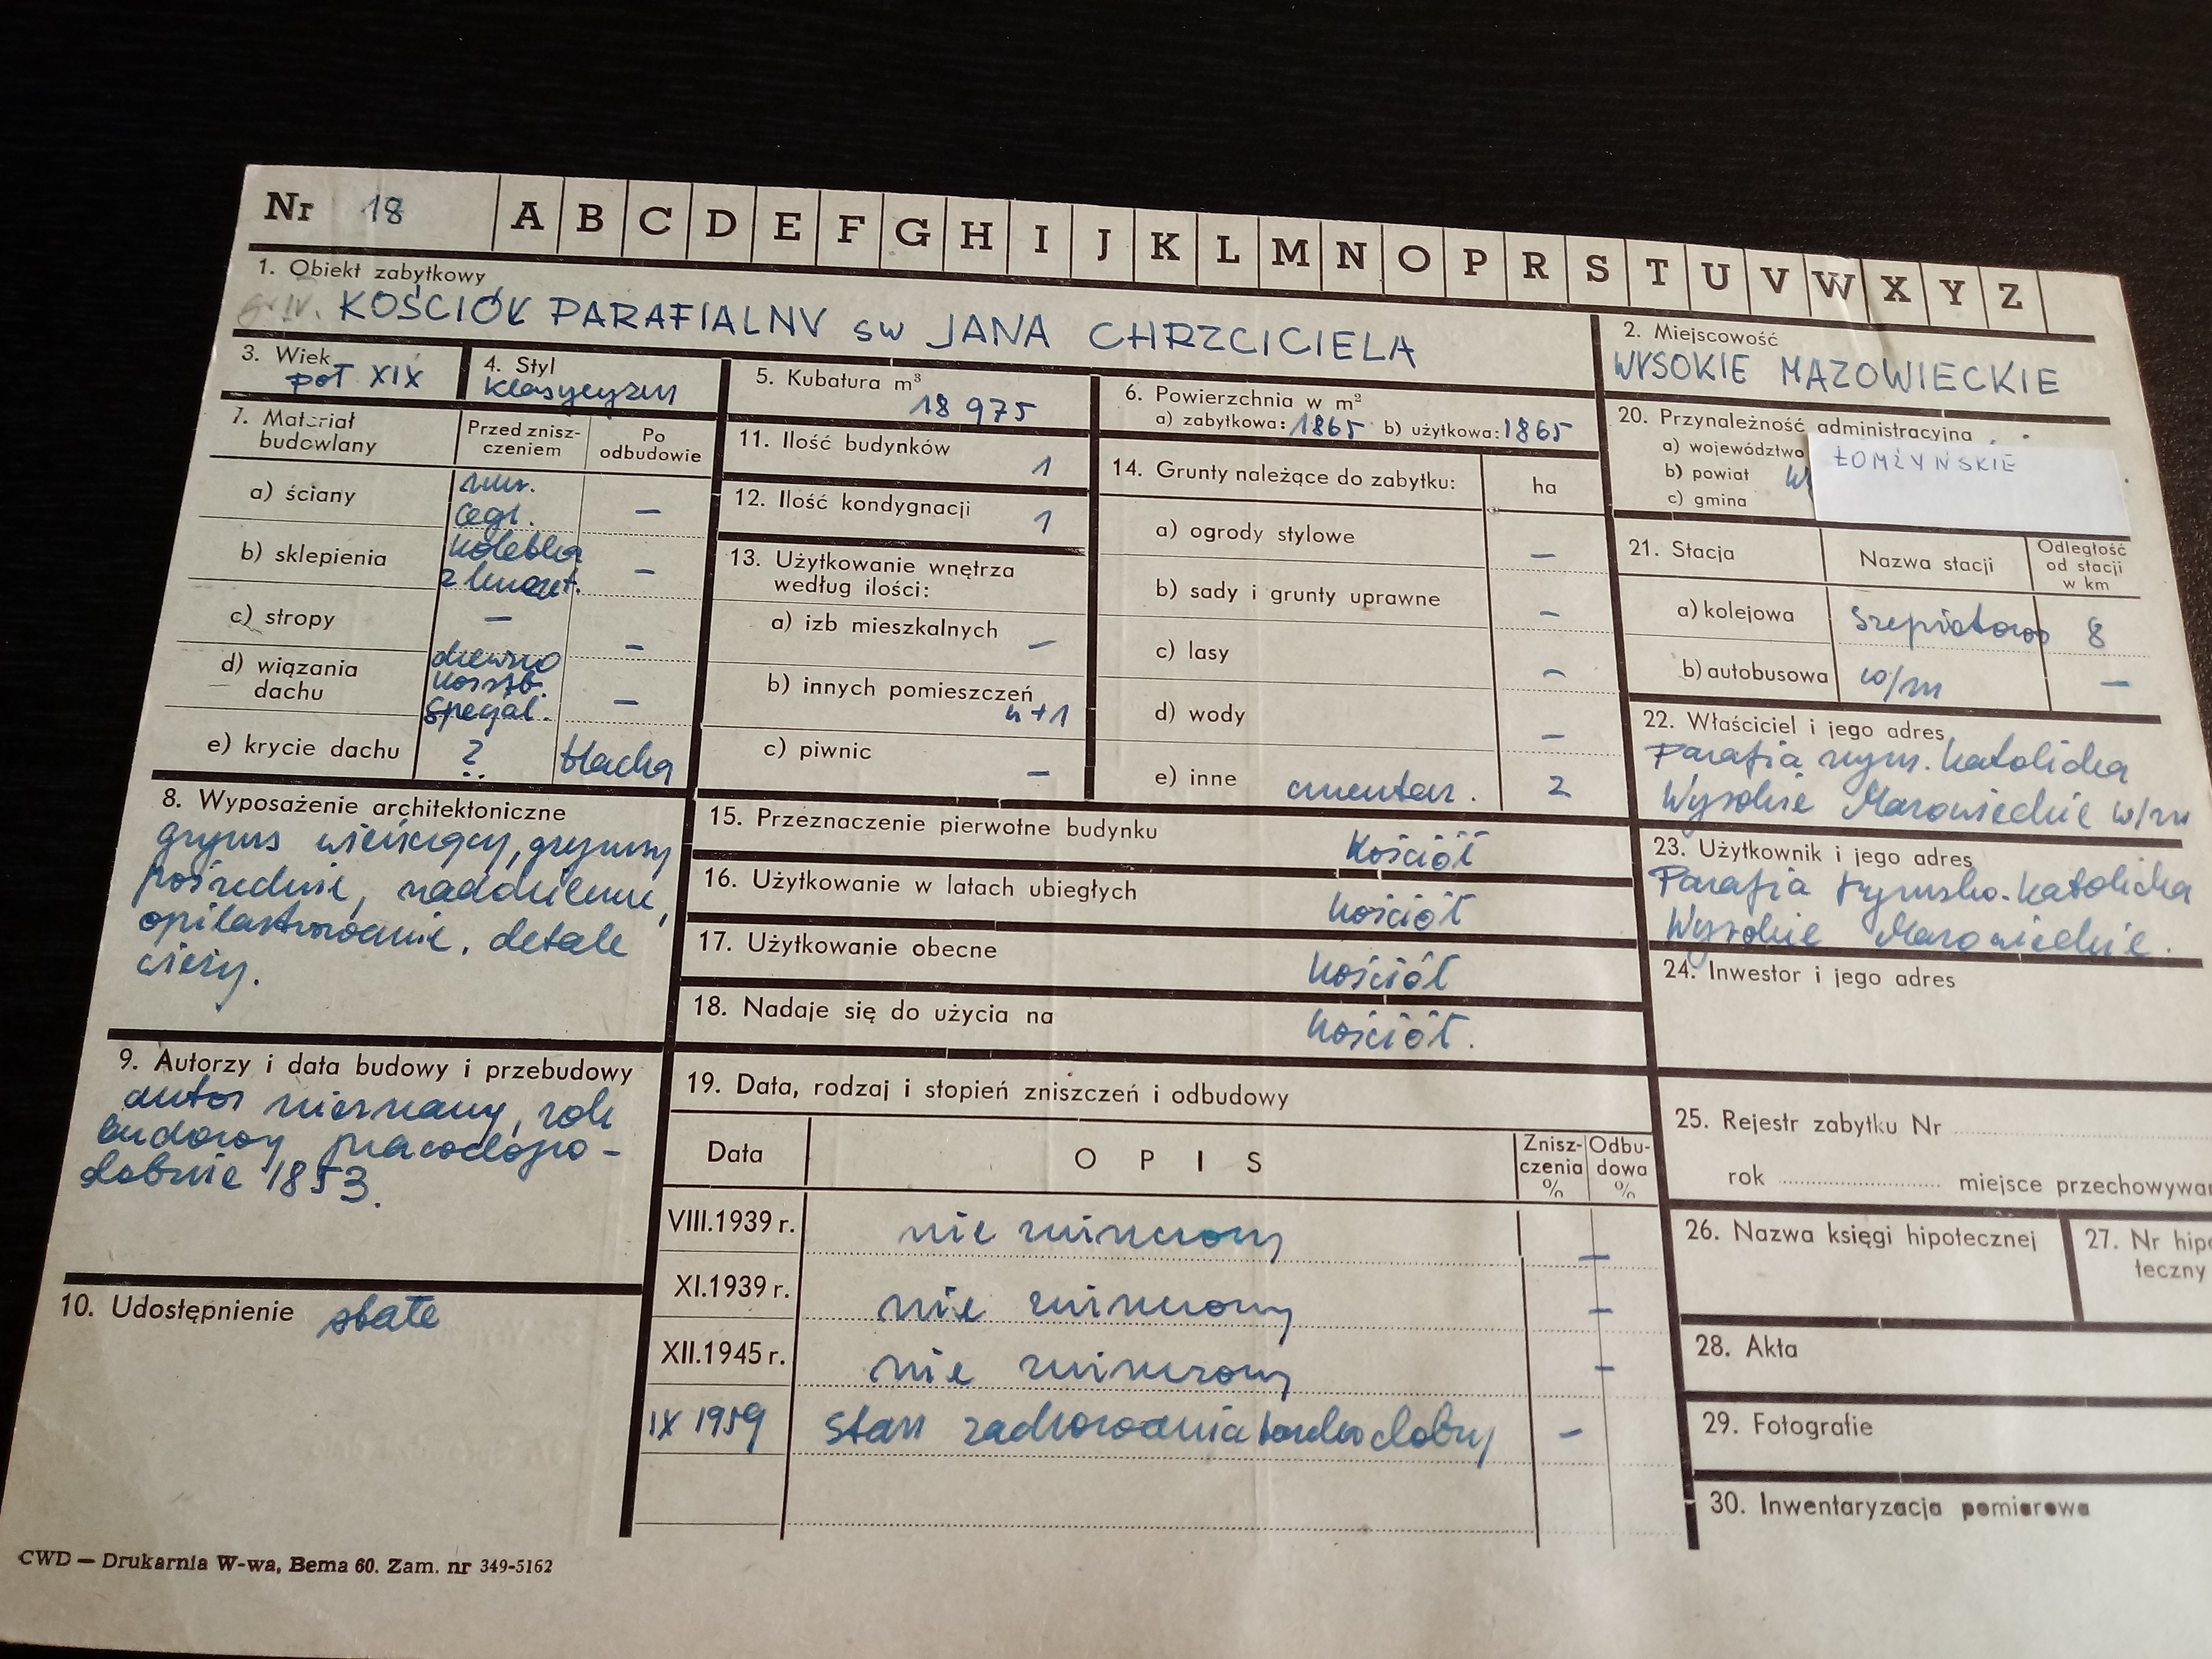 Nr 18 A B C D E F G H I J K L M N O P R S T U V W X Y Z
1. Obiekt zabytkowy
gr. IV. KOŚCIÓŁ PARAFIALNY sw JANA CHRZCICIELA
2. Miejscowość
WYSOKIE MAZOWIECKIE
3. Wiek
poł XIX
4. Styl
klasycyzm
5. Kubatura m³
18 975
6. Powierzchnia w m²
a) zabytkowa: 1865 b) użytkowa: 1865
7. Materiał budowlany
Przed znisz-
czeniem
Po
odbudowie
a) ściany
mur.
cegl.
—
b) sklepienia
kolebka
z lunet.
—
c) stropy
—
—
d) wiązania
dachu
drewno
konstr.
specjal.
—
e) krycie dachu
?
blacha
8. Wyposażenie architektoniczne
gzyms wieńczący, gzymsy
pośrednie, naddzienne,
opilastrowanie, detale
wieży.
9. Autorzy i data budowy i przebudowy
autor nieznany, rok
budowy prawdopo-
dobnie 1853.
10. Udostępnienie stałe
11. Ilość budynków 1
12. Ilość kondygnacji 1
13. Użytkowanie wnętrza
według ilości:
a) izb mieszkalnych —
b) innych pomieszczeń
4+1
c) piwnic —
14. Grunty należące do zabytku: ha
a) ogrody stylowe —
b) sady i grunty uprawne —
c) lasy —
d) wody —
e) inne cmentarz. 2
15. Przeznaczenie pierwotne budynku kościół
16. Użytkowanie w latach ubiegłych kościół
17. Użytkowanie obecne kościół
18. Nadaje się do użycia na kościół.
19. Data, rodzaj i stopień zniszczeń i odbudowy
Data
OPIS
Znisz-
czenia
%
Odbu-
dowa
%
VIII.1939 r. nie zniszczony —
XI.1939 r. nie zniszczony —
XII.1945 r. nie zniszczony —
IX 1959 stan zachowania bardzo dobry —
20. Przynależność administracyjna
a) województwo ŁOMŻYŃSKIE
b) powiat
c) gmina
21. Stacja
Nazwa stacji
Odległość
od stacji
w km
a) kolejowa Szepietowo 8
b) autobusowa w/m —
22. Właściciel i jego adres
Parafia rzym. katolicka
Wysokie Mazowieckie w/m
23. Użytkownik i jego adres
Parafia rzymsko-katolicka
Wysokie Mazowieckie.
24. Inwestor i jego adres
25. Rejestr zabytku Nr
rok miejsce przechowywan
26. Nazwa księgi hipotecznej
27. Nr hipo
teczny
28. Akta
29. Fotografie
30. Inwentaryzacja pomiarowa
CWD — Drukarnia W-wa, Bema 60. Zam. nr 349-5162